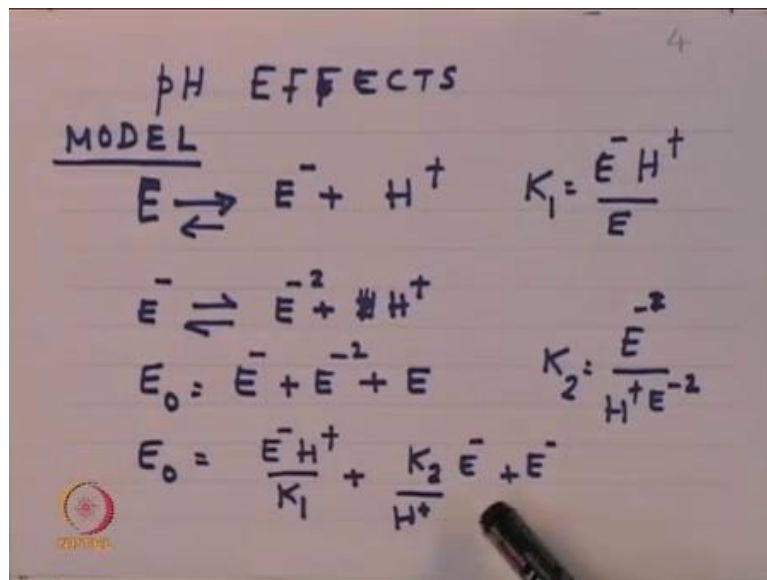 4
pH EFFECTS
MODEL
E ⇌ E⁻ + H⁺ K₁ = E⁻ H⁺ / E
E⁻ ⇌ E⁻² + H⁺
E₀ = E⁻ + E⁻² + E K₂ = E⁻² / H⁺ E⁻²
E₀ = E⁻ H⁺ / K₁ + K₂ / H⁺ E⁻ + E⁻
NPTEL